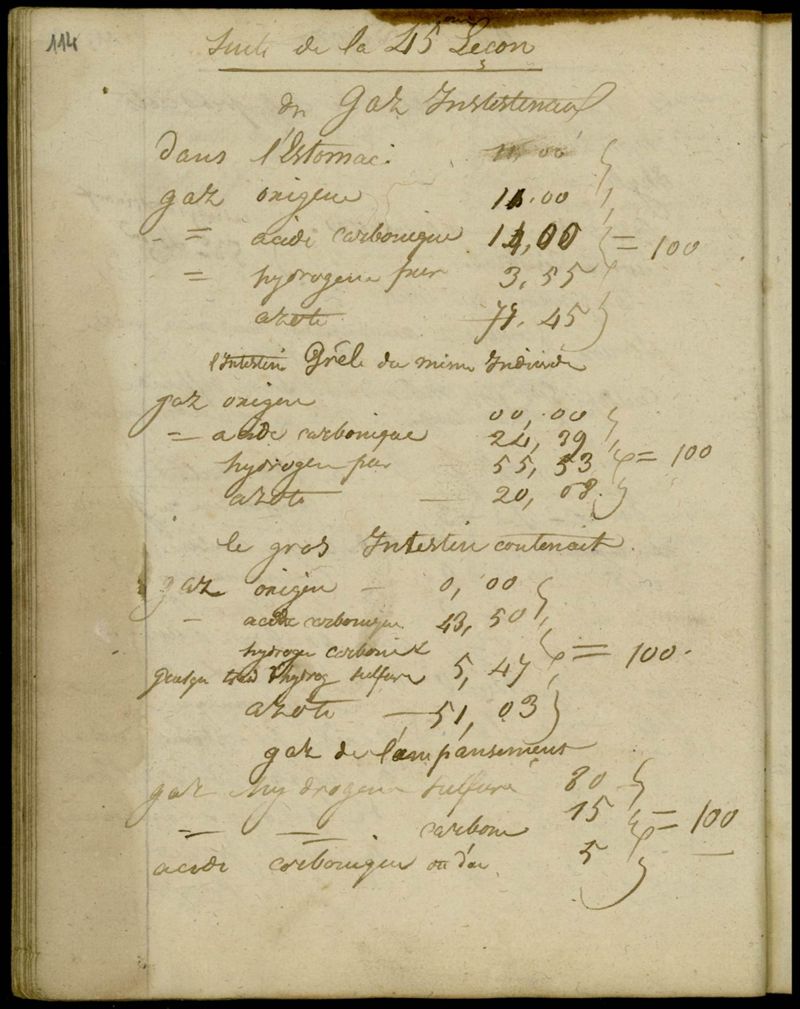 114
Suite de la 45 eme Leçon
du Gaz Instestinaux
dans l'Estomac.
gaz oxigene 11.00
- = acide carbonique 14,00 = 100
= hydrogene pur 3,55
azote 71.45
l'Intestin Grêle du même Individu
gaz oxigene 00,00
= acide carbonique 24,39
hydrogen pur 55,53 = 100
azote — 20,08.
le gros Intestin contenait.
gaz oxigen — 0,00
- acide carbonique 43,50
hydrogen carboné & = 100.
hydrog sulfuré 5,47
azote — 51,03
gaz de
gaz hydrogene sulfuré 80
= = carboné 15 = 100
acide carbonique 5